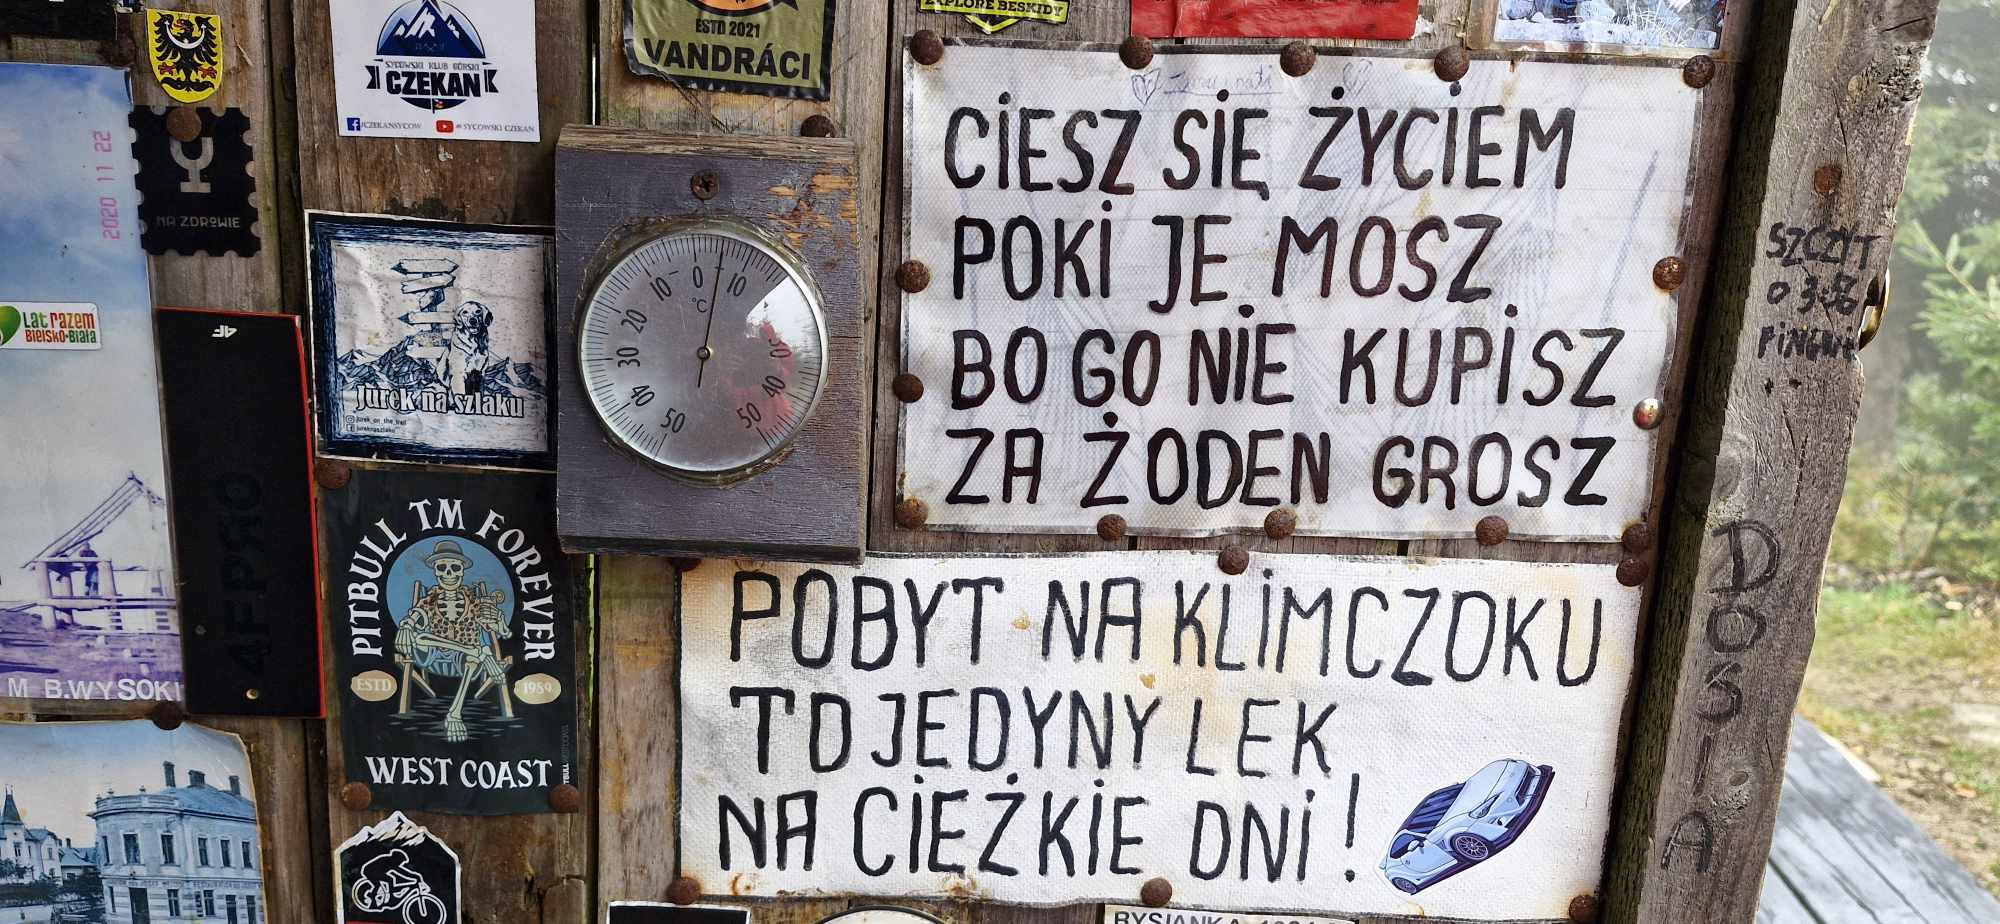 ESTD 2021
VANDRÁCI
XPLORE BESKIDY
SYCOWSKI KLUB GÓRSKI
CZEKAN
/CZEKANSYCOW
SYCOWSKI CZEKAN
2020 11 22
NA ZDROWIE
Lat razem
Bielsko-Biała
4F
4FPRO
M B.WYSOKI
Jurek na szlaku
jurek_on_the_trail
jureknaszlaku
50 40 30 20 10 0 10 30 40 50
°C
PITBULL TM FOREVER
ESTD 1989
WEST COAST
CIESZ SIĘ ŻYCIEM
POKI JE MOSZ
BO GO NIE KUPISZ
ZA ŻODEN GROSZ
POBYT NA KLIMCZOKU
TO JEDYNY LEK
NA CIEŻKIE DNI!
SZCZYT
O 3:56
DOSIA